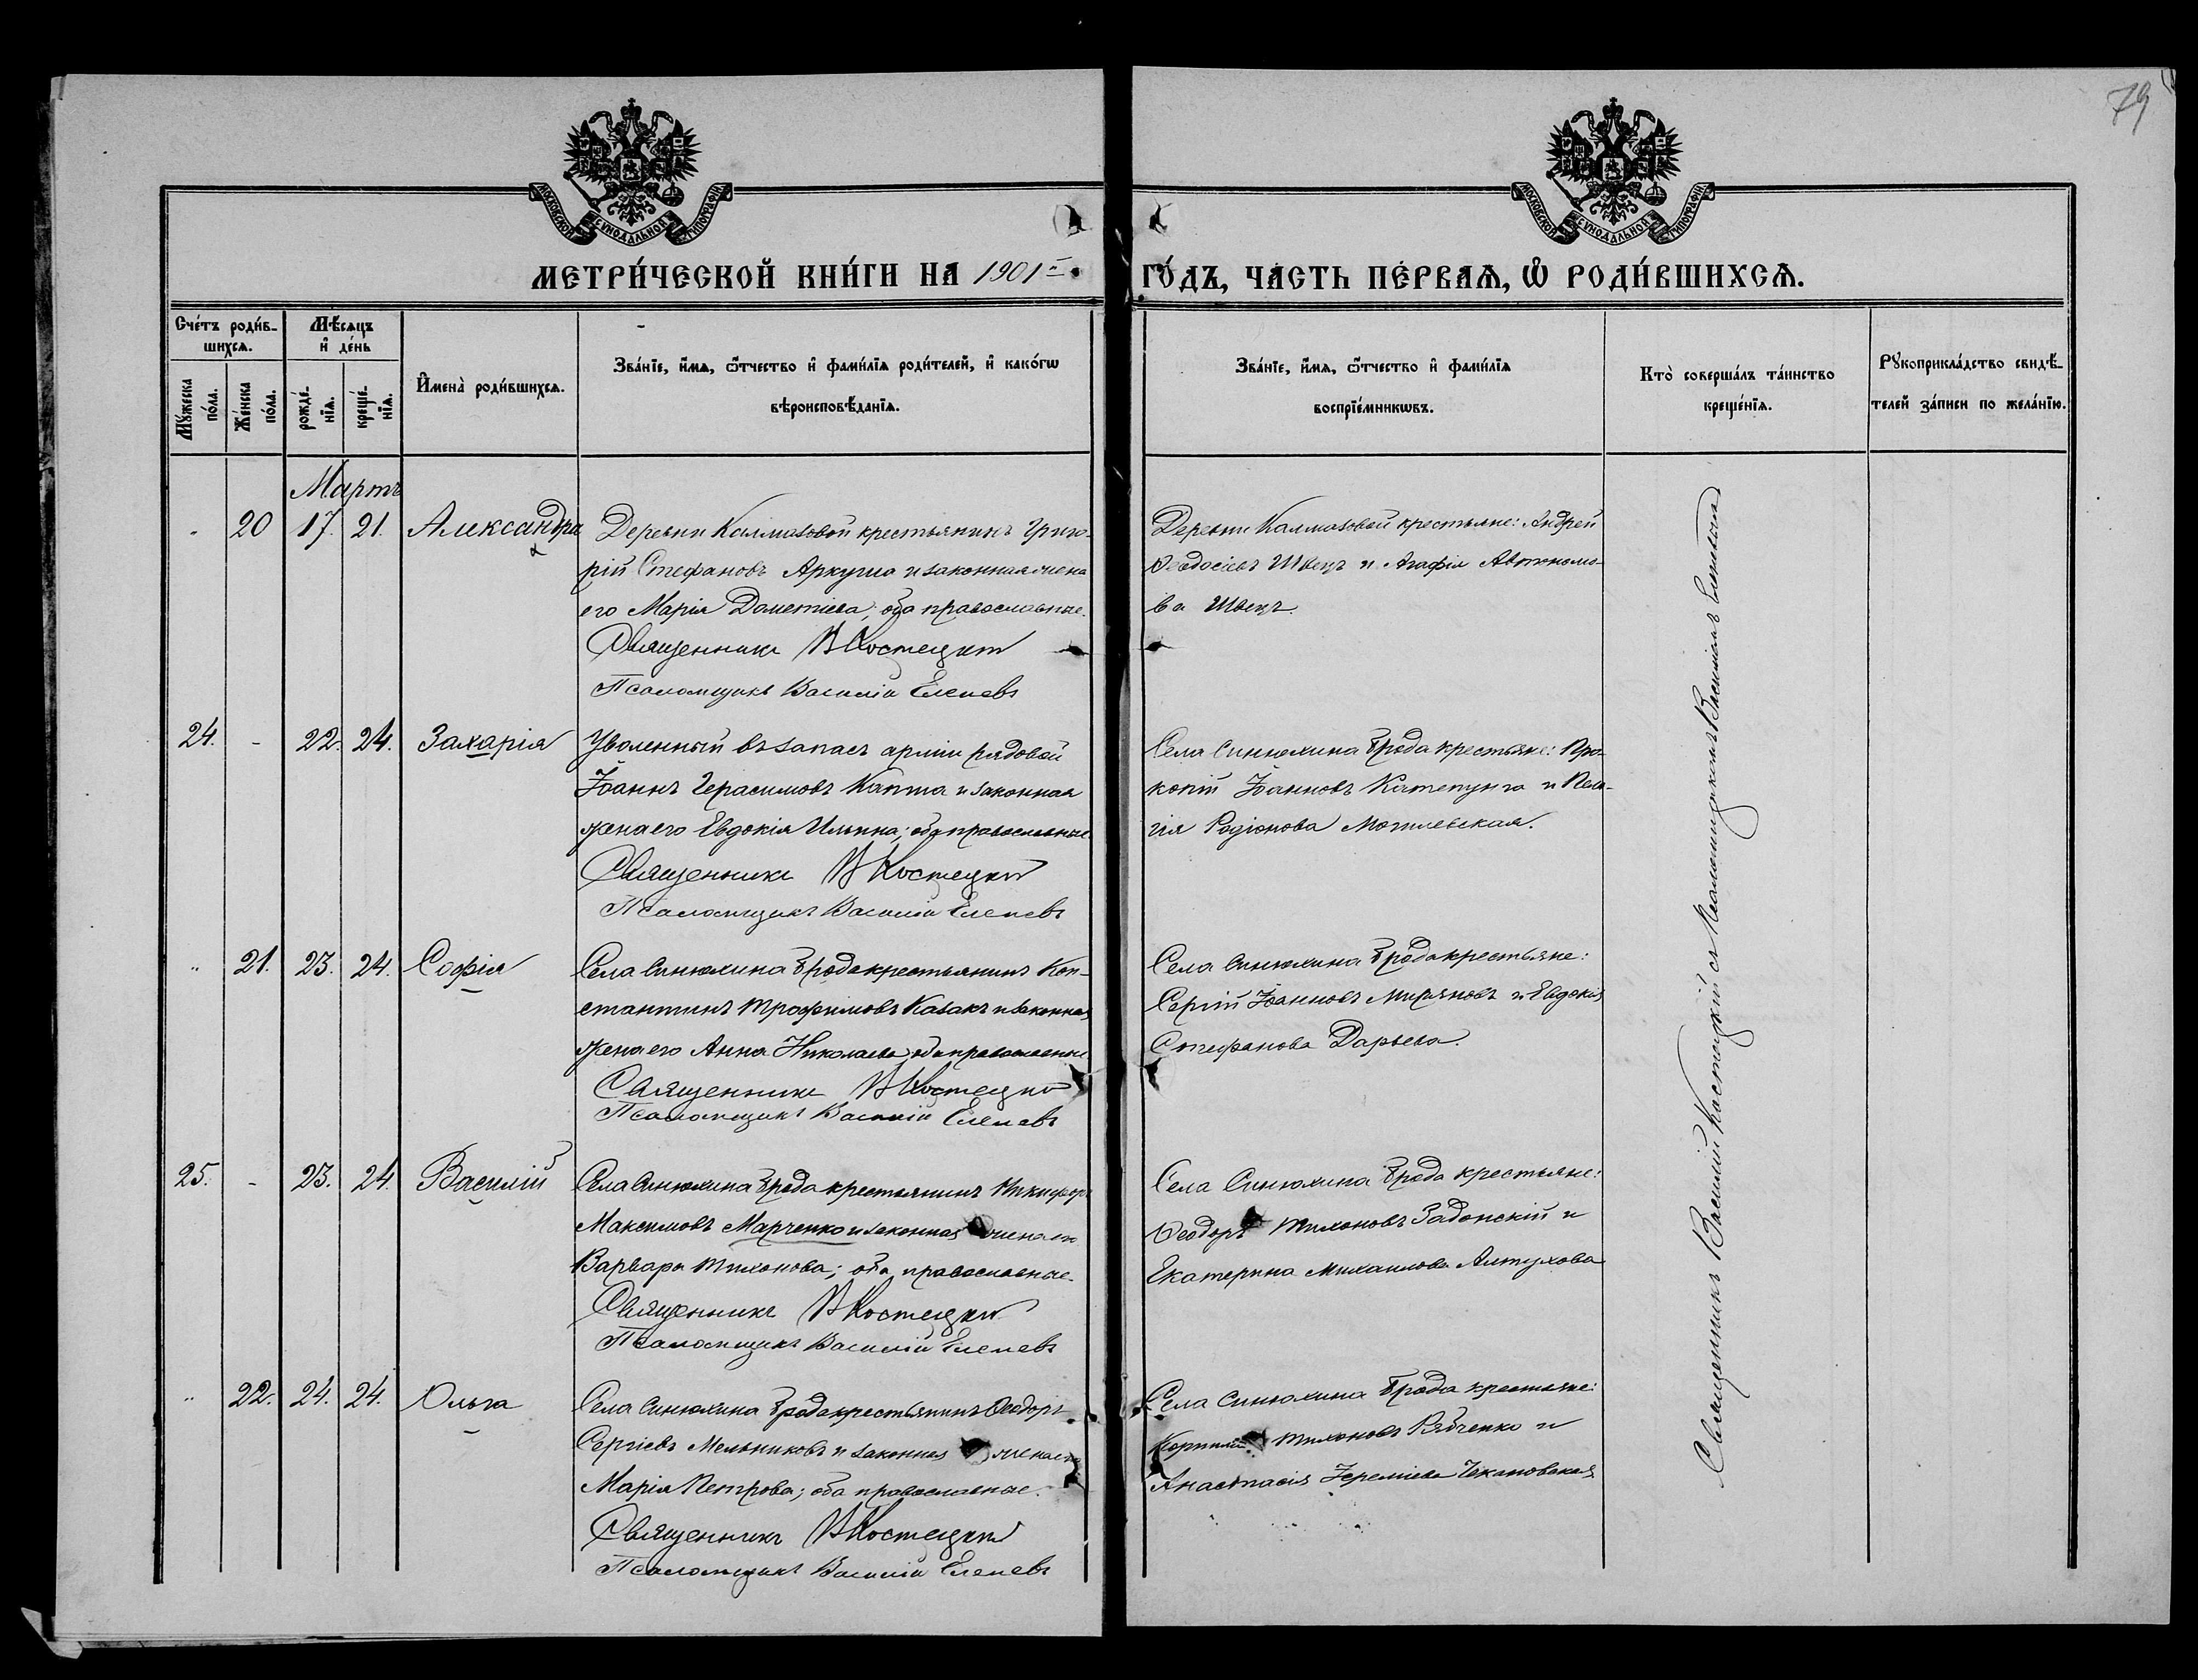 79
МОСКОВСКОЙ СѴНОДАЛЬНОЙ ТИПОГРАФІИ
МОСКОВСКОЙ СѴНОДАЛЬНОЙ ТИПОГРАФІИ
МЕТРИ́ЧЕСКОЙ КНИ́ГИ НА 1901 ГО́ДЪ, ЧА́СТЬ ПЕ́РВАѦ, Ѡ҆ РОДИ́ВШИХСѦ.
Сче́тъ роди́в-
шихсѧ.
Мꙋжеска по́ла.
Же́нска по́ла.
Мѣ́сѧцъ
и҆ де́нь
рожде́-
нїѧ.
креще́-
нїѧ.
И҆мена̀ роди́вшихсѧ.
Зва́нїе, и҆́мѧ, ѻ҆́тчество и҆ фами́лїѧ роди́телей, и҆ како́гѡ
вѣроисповѣ́данїѧ.
Зва́нїе, и҆́мѧ, ѻ҆́тчество и҆ фами́лїѧ
воспрїе́мникѡвъ.
Кто̀ соверша́лъ та́инство
креще́нїѧ.
Рꙋкоприкла́дство свидѣ́-
телей за́писи по жела́нїю.
Мартъ
- 20 17. 21. Александра
Деревни Калмазовой крестьянинъ Григо-
рій Стефановъ Аркуша и законная жена
его Марія Дометіева; оба православные.
Священникъ В Костецкій
Псаломщикъ Василій Еленевъ
Деревни Калмазовой крестьяне: Андрей
Ѳеодосіевъ Швецъ и Агафія Автономо-
ва Швецъ.
24. - 22. 24. Захарія
Уволенный въ запасъ арміи рядовой
Іоаннъ Герасимовъ Капта и законная
жена его Евдокія Ильина; оба православные
Священникъ В Костецкій
Псаломщикъ Василій Еленевъ
Села Синюхина Брода крестьяне: Про-
копій Іоанновъ Катепунга и Пела-
гія Родіонова Могилевская.
" 21. 23. 24. Софія
Села Синюхина Брода крестьянинъ Кон-
стантинъ Трофимовъ Казакъ и законная
жена его Анна Николаева; оба православные
Священникъ В Костецкій
Псаломщикъ Василій Еленевъ
Села Синюхина Брода крестьяне:
Сергій Іоанновъ и Евдокія
Стефанова Дарьева.
25. - 23. 24 Василій
Села Синюхина Брода крестьянинъ Никифоръ
Максимовъ Марченко и законная жена его
Варвара Тихонова; оба православные.
Священникъ В Костецкій
Псаломщикъ Василій Еленевъ
Села Синюхина Брода крестьяне:
Ѳеодоръ Тихоновъ Задонскій и
Екатерина Михаилова Алтухова
" 22. 24. 24. Ольга
Села Синюхина Брода крестьянинъ Ѳеодоръ
Сергіевъ Мельниковъ и законная жена его
Марія Петрова; оба православные.
Священникъ В Костецкій
Псаломщикъ Василій Еленевъ
Села Синюхина Брода крестьяне:
Корнилій Тихоновъ Рябченко и
Анастасія Іереміева Чекановская
Священникъ Василій Костецкій съ Псаломщикомъ Василіемъ Еленевымъ